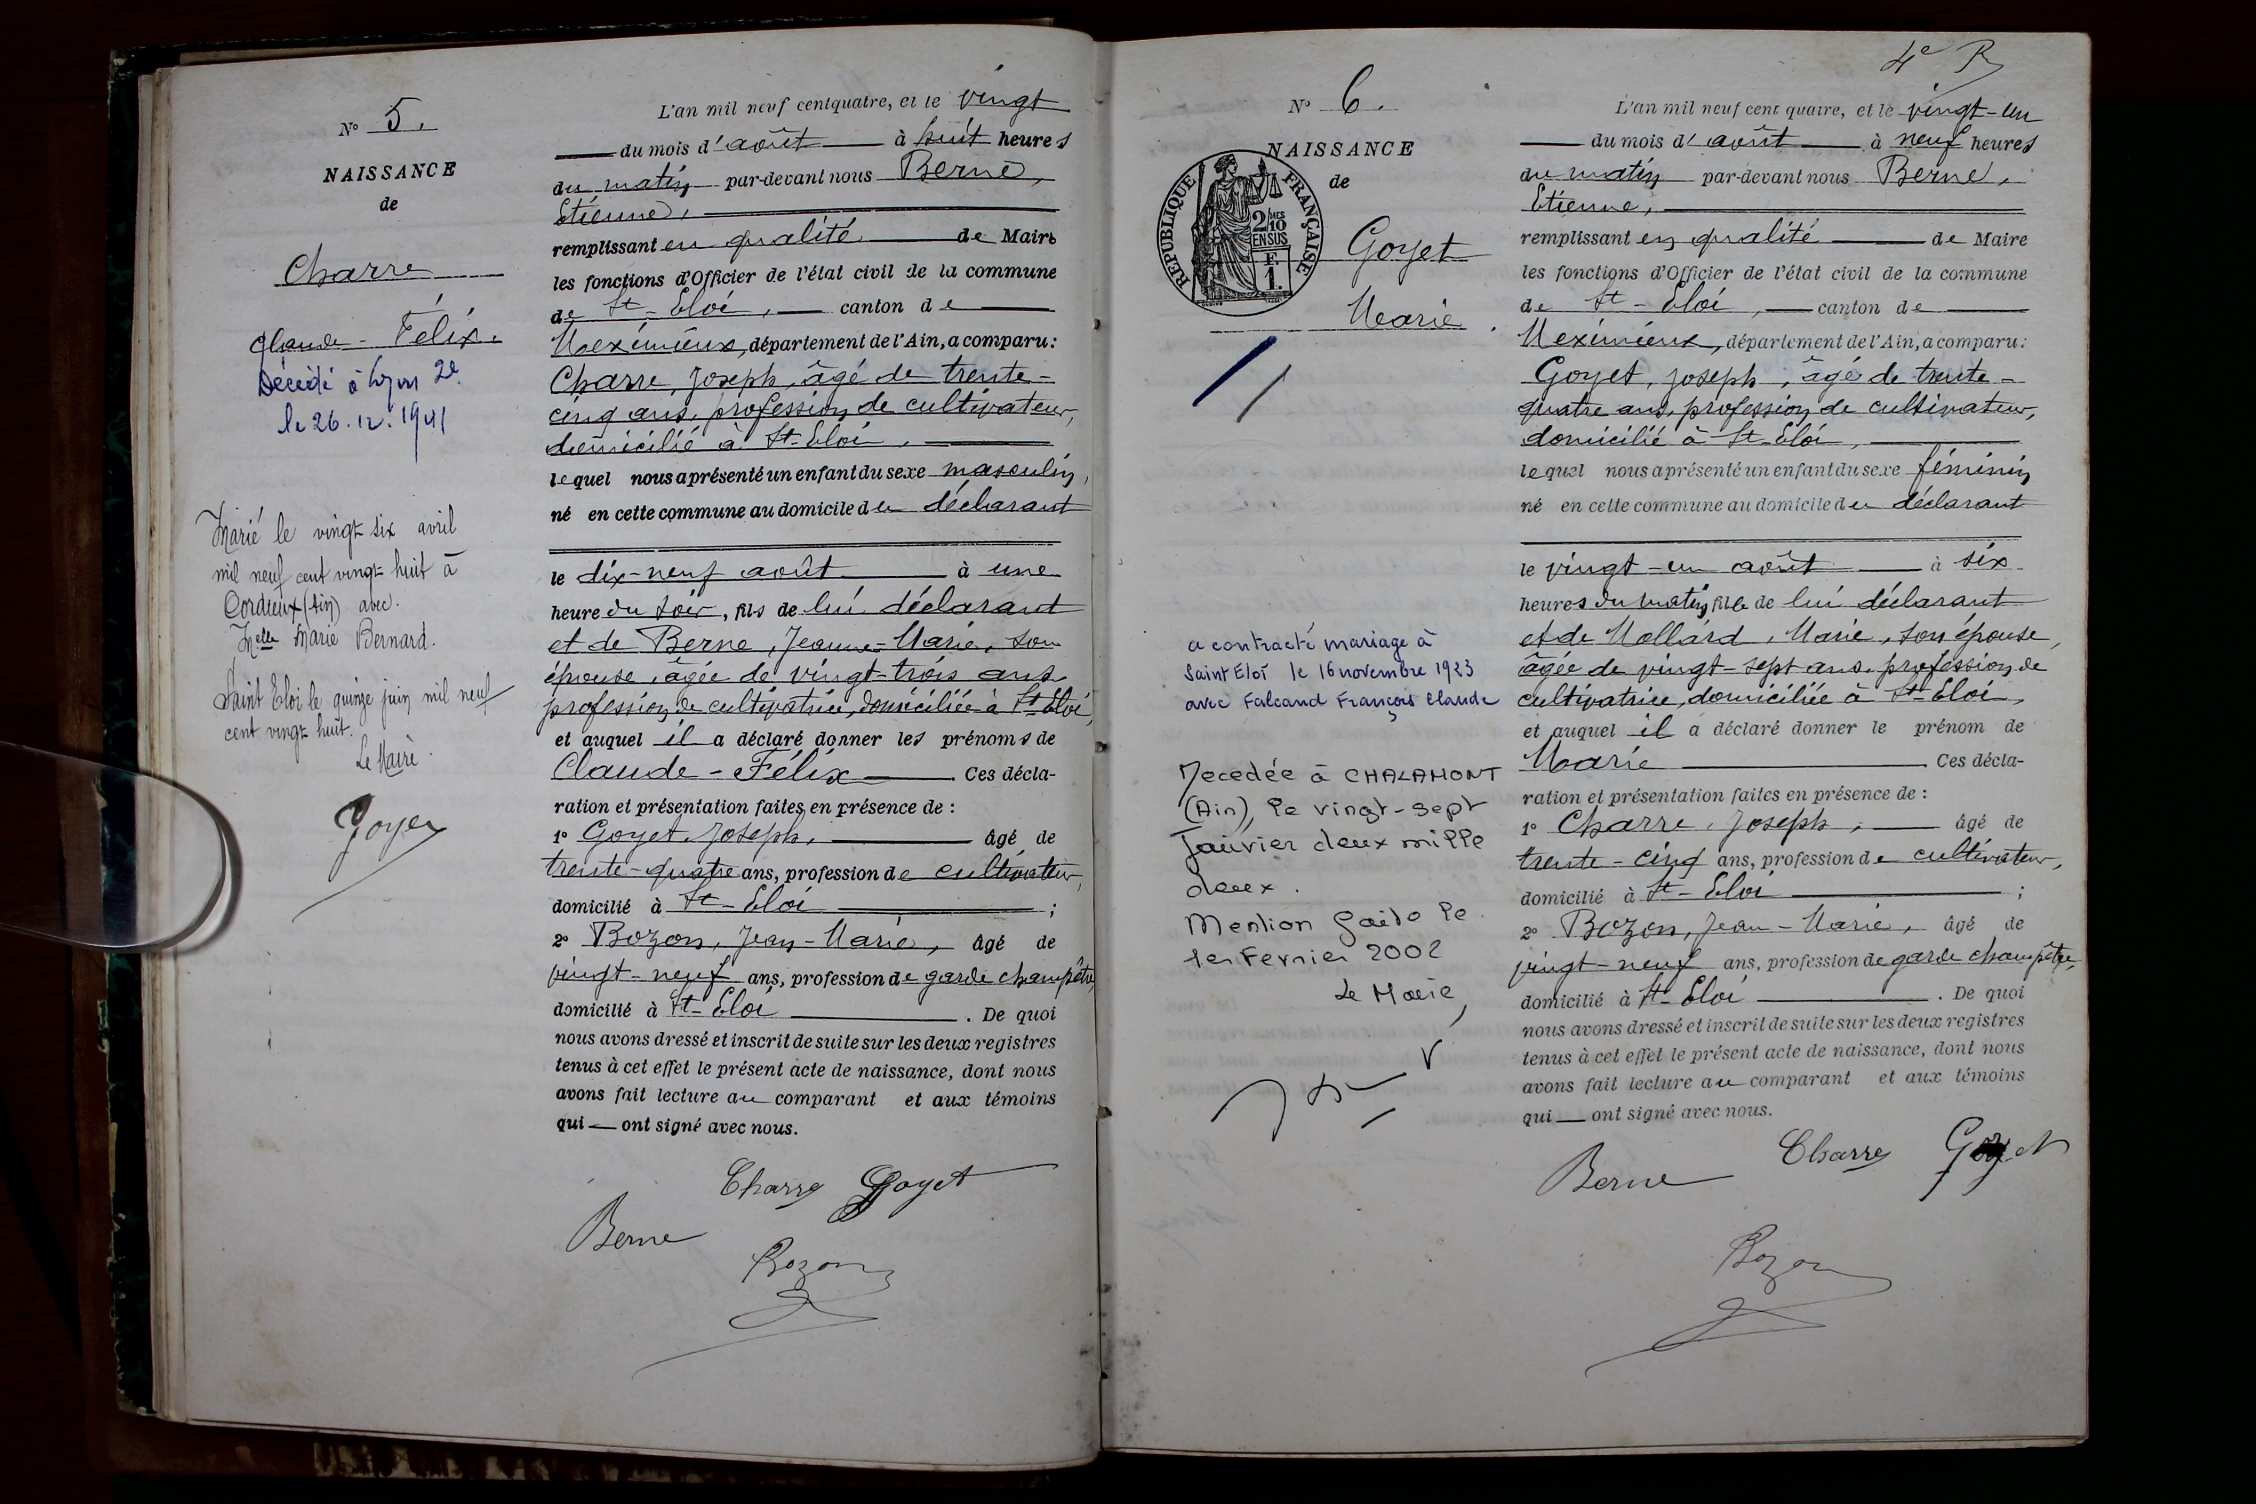 N° 5.
NAISSANCE
de
Charre
Claude - Félix.
Décédé à Lyon 2e
le 26.12.1941
Marié le vingt six avril
mil neuf cent vingt huit à
Cordieux (Ain) avec.
Melle Marie Bernard.
Saint Eloi le quinze juin mil neuf
cent vingt huit.
Le Maire.
Goyet
L'an mil neuf cent quatre, et le vingt
du mois d'août à huit heures
du matin par-devant nous Berne,
Etienne,
remplissant en qualité de Maire
les fonctions d'Officier de l'état civil de la commune
de St-Eloi, canton de
Meximieux, département de l'Ain, a comparu:
Charre, Joseph, âgé de trente-
cinq ans, profession de cultivateur,
domicilié à St-Eloi,
lequel nous a présenté un enfant du sexe masculin,
né en cette commune au domicile du déclarant
le dix-neuf août à une
heure du soir, fils de lui déclarant
et de Berne, Jeanne-Marie, son
épouse, âgée de vingt-trois ans
profession de cultivatrice, domiciliée à St-Eloi,
et auquel il a déclaré donner les prénoms de
Claude-Félix Ces décla-
ration et présentation faites en présence de :
1° Goyet, Joseph, âgé de
trente-quatre ans, profession de cultivateur,
domicilié à St-Eloi ;
2° Bozon, Jean-Marie, âgé de
vingt-neuf ans, profession de garde champêtre,
domicilié à St-Eloi . De quoi
nous avons dressé et inscrit de suite sur les deux registres
tenus à cet effet le présent acte de naissance, dont nous
avons fait lecture au comparant et aux témoins
qui ont signé avec nous.
Charre Goyet
Berne
Bozon
4e R
N° 6.
NAISSANCE
de
RÉPUBLIQUE FRANÇAISE
2/10MES
EN SUS
F.
1.
Goyet
Marie
a contracté mariage à
Saint Eloi le 16 novembre 1923
avec Falcand François Claude
Decedée à CHALAMONT
(Ain), le vingt-sept
Janvier deux mille
deux.
Mention faite le
1er Fevrier 2002
Le Maire,
L'an mil neuf cent quatre, et le vingt-un
du mois d'août à neuf heures
du matin par-devant nous Berne,
Etienne,
remplissant en qualité de Maire
les fonctions d'Officier de l'état civil de la commune
de St-Eloi, canton de
Meximieux, département de l'Ain, a comparu:
Goyet, Joseph, âgé de trente-
quatre ans, profession de cultivateur,
domicilié à St-Eloi,
lequel nous a présenté un enfant du sexe féminin
né en cette commune au domicile du déclarant
le vingt-un août à six
heures du matin, fille de lui déclarant
et de Mollard, Marie, son épouse,
âgée de vingt-sept ans, profession de
cultivatrice, domiciliée à St-Eloi,
et auquel il a déclaré donner le prénom de
Marie Ces décla-
ration et présentation faites en présence de :
1° Charre, Joseph, âgé de
trente-cinq ans, profession de cultivateur,
domicilié à St-Eloi ;
2° Bozon, Jean-Marie, âgé de
vingt-neuf ans, profession de garde champêtre,
domicilié à St-Eloi . De quoi
nous avons dressé et inscrit de suite sur les deux registres
tenus à cet effet le présent acte de naissance, dont nous
avons fait lecture au comparant et aux témoins
qui ont signé avec nous.
Charre Goyet
Berne
Bozon